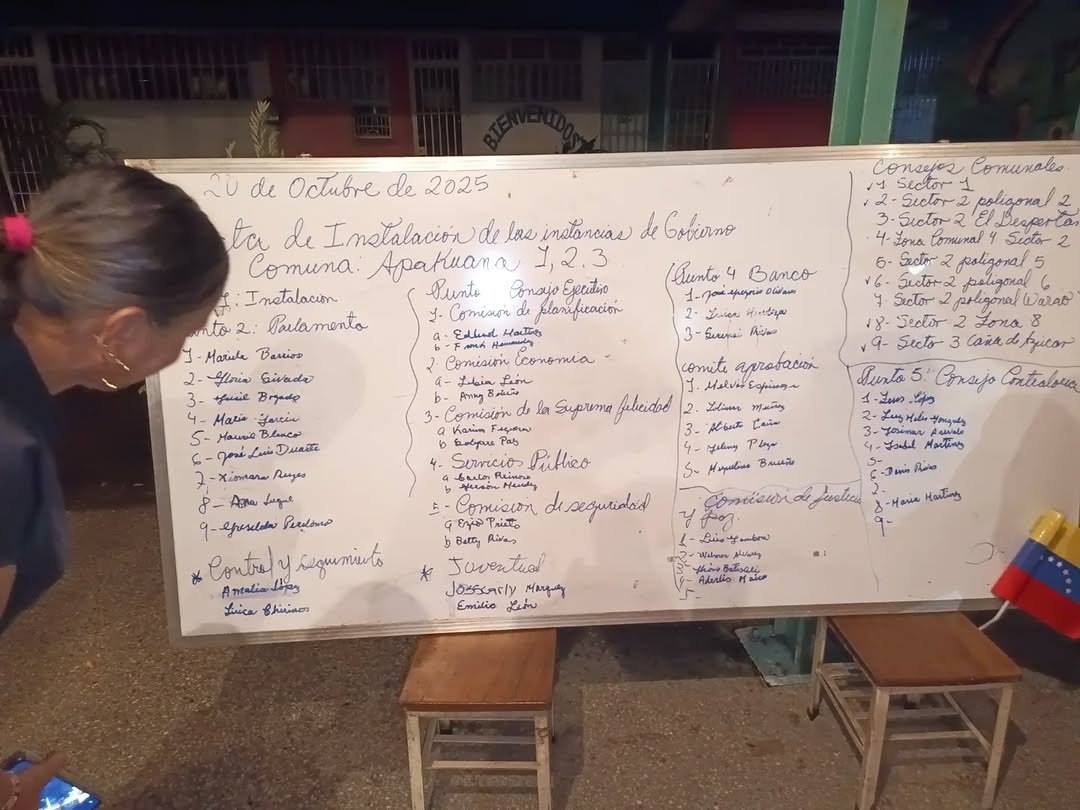 BIENVENIDOS
20 de Octubre de 2025
ta de Instalación de las instancias de Gobierno
Comuna: Apakuana 1, 2.3
1: Instalación
nto 2: Parlamento
1- Maria Barrios
2- Gloria
3-
4- Mario Garcia
5- Blanco
6- José Luis Duarte
7- Xiomara Reyes
8- Ana Luque
9- Griselda Perdomo
* Control y seguimiento
Amalia López
Luisa Chirinos
Punto Consejo Ejecutivo
1- Comisión de planificación
a- Martínez
b- Frank Hernandez
2. Comisión Economia
a- Libia León
b- Anny
3- Comisión de la Suprema felicidad
a Karina
b Paz
4- Servicios Público
a Carlos Reinoso
b Gerson Mendez
5- Comision de seguridad
a Enzo Prieto
b Betty Rivas
* Juventud
Marquez
Emilio León
Punto 4 Banco
1- José Gregorio
2-
3- Rivas
comite aprobación
1. Espinoza
2. Muñoz
3- Alberto
4-
5- Briceño
Comision de Justicia
y Paz.
1- Luis
2- Wilmer
3-
4- Aderlis
5-
Consejos Comunales
1 Sector 1
2- Sector 2 poligonal 2
3- Sector 2 El Desperta
4- Zona Comunal 4 Sector 2
5- Sector 2 poligonal 5
6- Sector 2 poligonal 6
7- Sector 2 poligonal Warao
8- Sector 2 Zona 8
9- Sector 3 Caña de Azucar
Punto 5: Consejo Contraloria
1- Luis López
2- Luz Gonzalez
3- Josimar
4- Isabel Martínez
5-
6- Denis Rivas
7-
8- Maria Martinez
9-